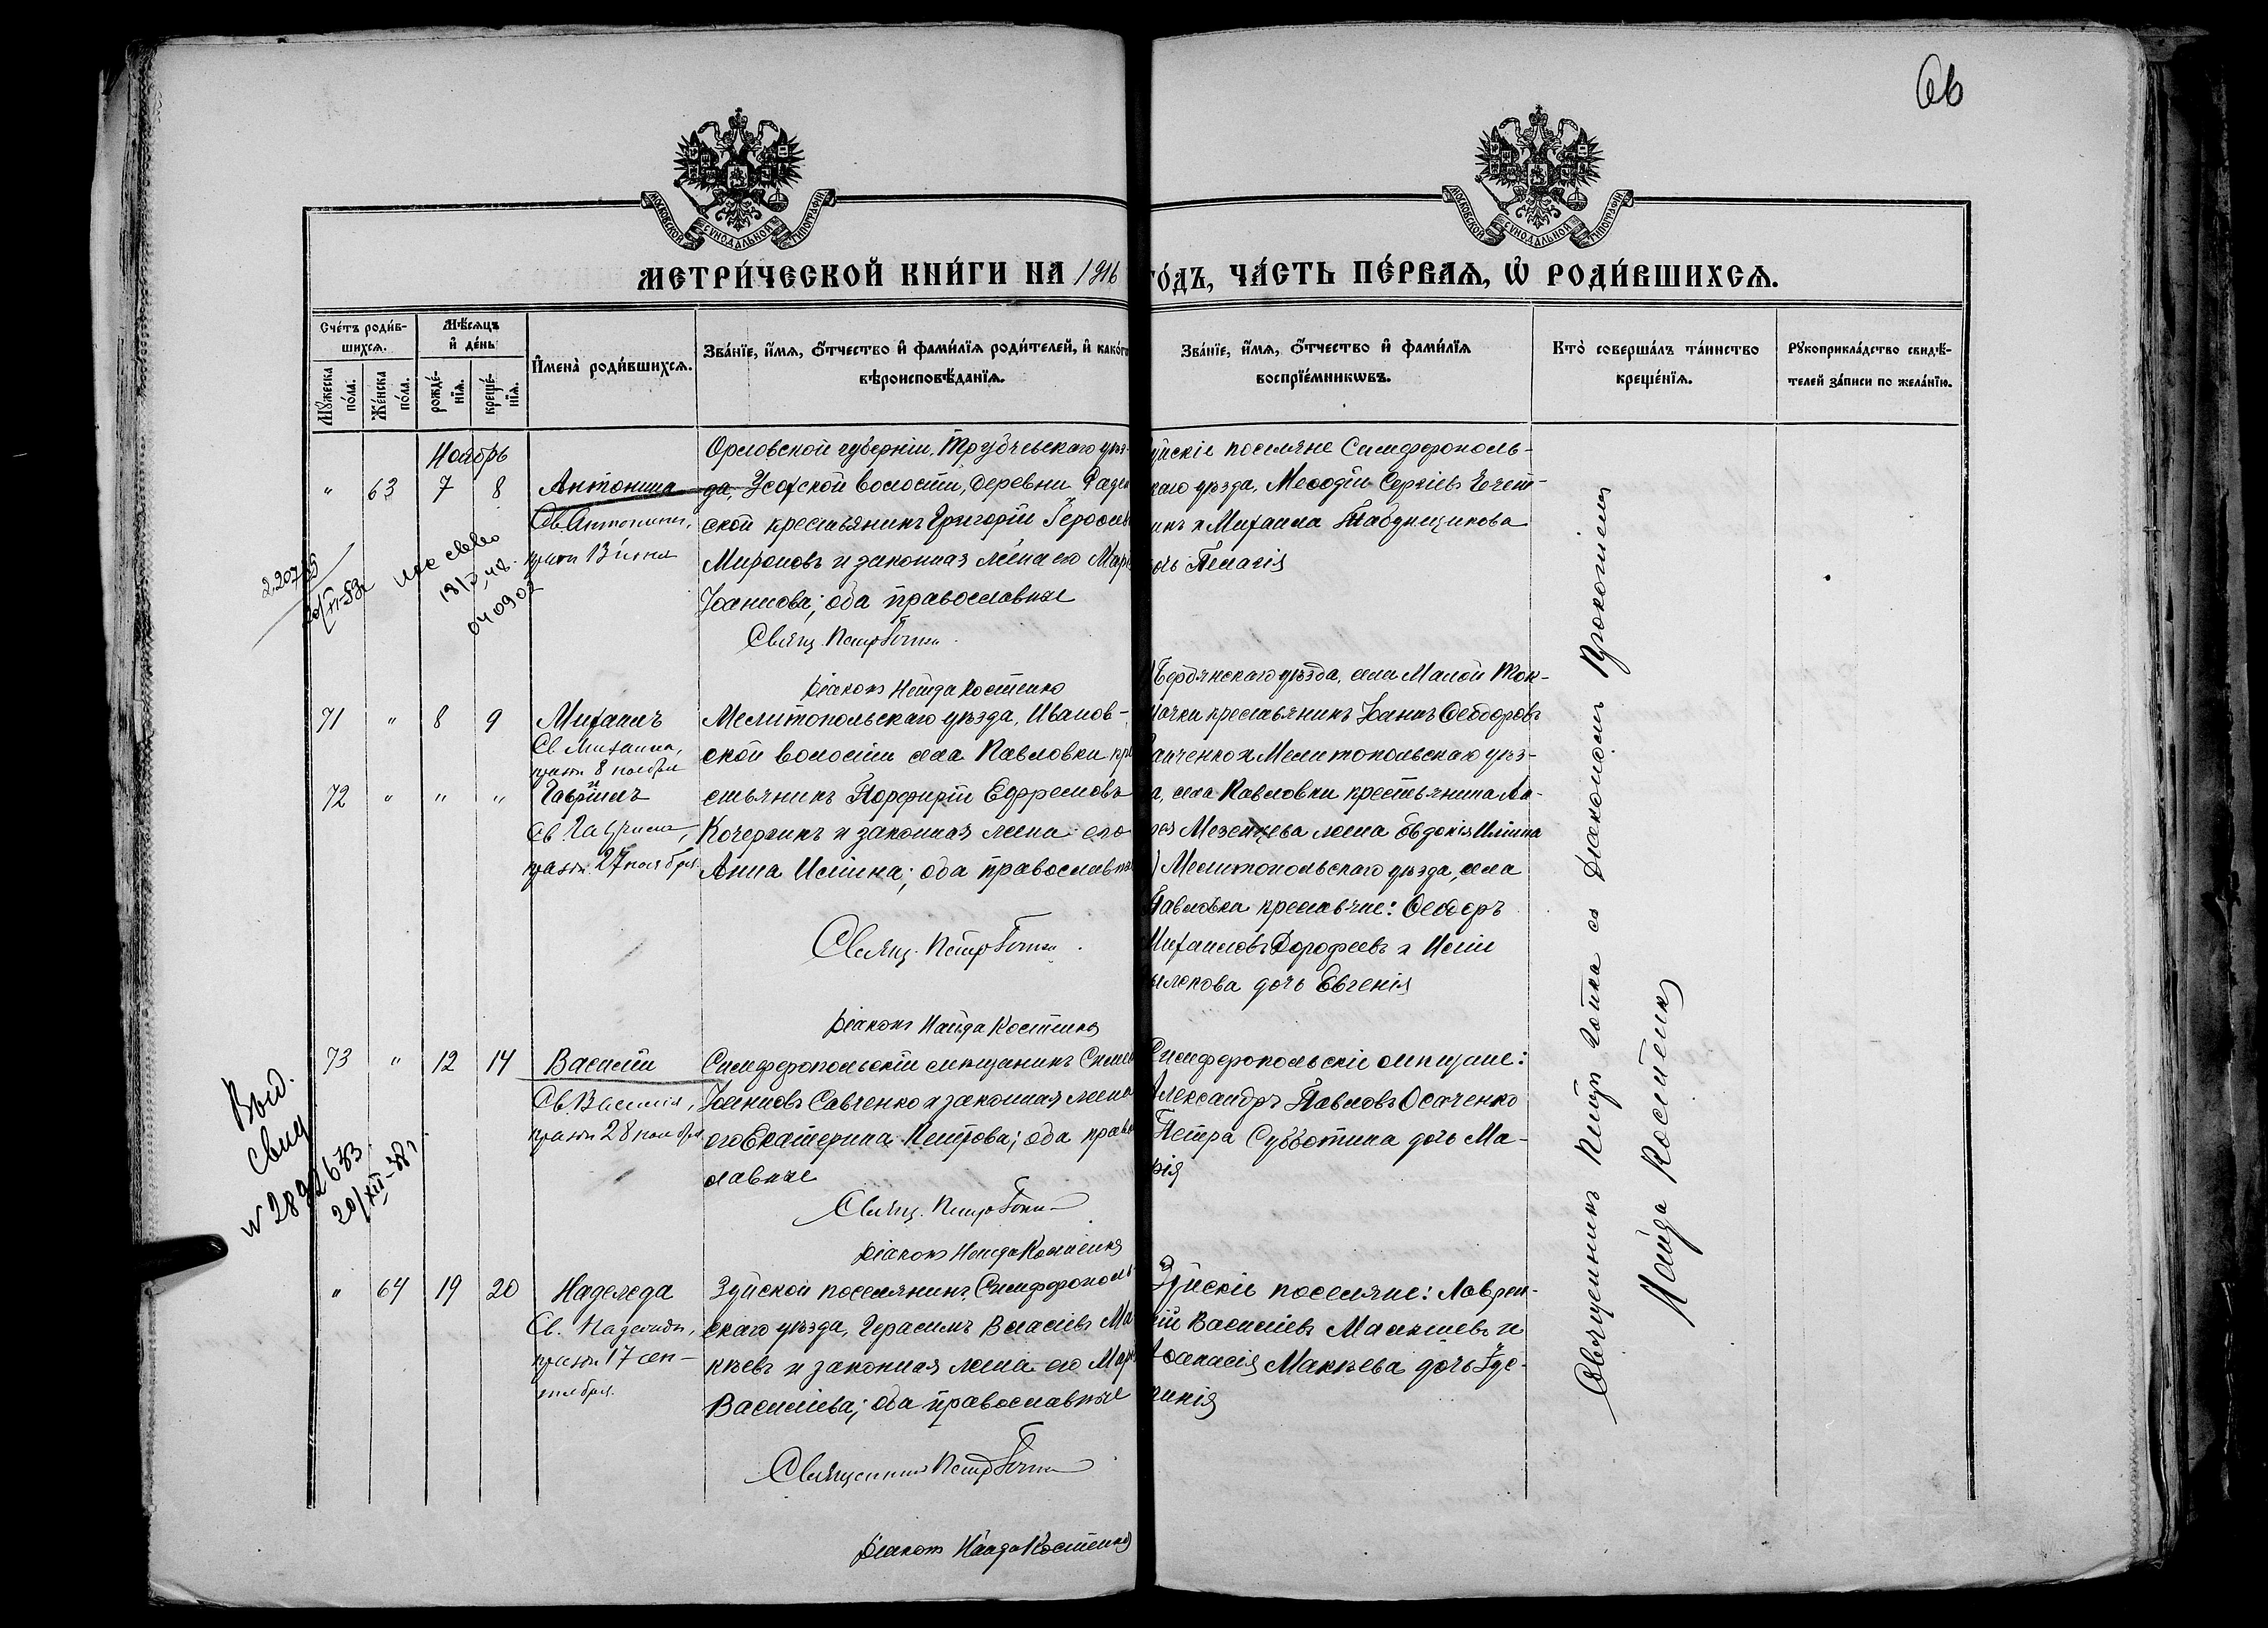 66
МОСКОВСКОЙ СѴНОДАЛЬНОЙ ТИПОГРАФИИ
МОСКОВСКОЙ СѴНОДАЛЬНОЙ ТИПОГРАФИИ
МЕТРИ́ЧЕСКОЙ КНИ́ГИ НА 1916
ГО́ДЪ, ЧА́СТЬ ПЕ́РВАѦ, Ѡ҆ РОДИ́ВШИХСѦ.
Сче́тъ роди́в-
шихсѧ.
Мꙋ́жеска по́ла.
Же́нска по́ла.
Мѣ́сѧцъ
и҆ де́нь
рожде́-
нїѧ.
креще́-
нїѧ.
И҆мена̀ роди́вшихсѧ.
Зва́нїе, и҆́мѧ, ѻ҆́тчество и҆ фами́лїѧ роди́телей, и҆ како́гѡ
вѣроисповѣ́данїѧ.
Зва́нїе, и҆́мѧ, ѻ҆́тчество и҆ фами́лїѧ
воспрїе́мникѡвъ.
Кто̀ соверша́лъ та́инство
креще́нїѧ.
Рꙋкоприкла́дство свидѣ́-
телей за́писи по жела́нїю.
Ноябрь
" 63 7 8 Антонина
Св. Антонины,
Орловской губерніи, Трубчевскаго уѣз-
да, Усохской волости, деревни
ской крестьянинъ Григорій
Мироновъ и законная жена его Мар
Іоаннова; оба православные
Свящ. Петръ Гопка
Діаконъ Найда Костенко
уйскіе поселяне Симферополь-
скаго уѣзда, Меѳодій Сергіевъ
инъ и Михаила Табунщикова
очь Пелагія
71 " 8 9 Михаилъ
Св. Михаила,
празн. 8 ноября
72 " " " Гавріилъ
Св. Гавріила,
празн. 27 ноября
Мелитопольскаго уѣзда, Иванов-
ской волости села Павловки кре
стьянинъ Порфирій Ефремовъ
Кочергинъ и законная жена его
Анна Иліина; оба православные
Свящ. Петръ Гопка
Діаконъ Найда Костенко
) Бердянскаго уѣзда, села Малой Ток-
мачки крестьянинъ Іоаннъ Ѳеодоровъ
анченко и Мелитопольскаго уѣз-
а, села Павловки крестьянина Ан-
рея Мезенцева жена Евдокія Иліина
) Мелитопольскаго уѣзда, села
Павловки крестьяне: Ѳеодоръ
Михаиловъ Дорофеевъ и Иліи
дочь Евгенія
73 " 12 14 Василій
Св. Василія,
празн. 28 ноября
Симферопольскій мѣщанинъ
Іоанновъ Савченко и законная жена
его Екатерина Петрова; оба право
славные
Свящ. Петръ Гопка
Діаконъ Найда Костенко
Симферопольскіе мѣщане:
Александръ Павловъ Осаченко
Петра Субботина дочь Ма-
рія
" 64 19 20 Надежда
Св. Надежды,
празн. 17 сен-
тября.
Зуйской поселянинъ, Симферополь-
скаго уѣзда, Герасимъ Власіевъ Ма
кѣевъ и законная жена его Мар
Василіева; оба православные
Священникъ Петръ Гопка
Діаконъ Найда Костенко
Зуйскіе поселяне: Лаврен-
тій Василіевъ и
Аѳанасія Макѣева дочь
Священникъ Петръ Гопка съ Діакономъ Прокопіемъ
Найда Костенко
Выд.
свид
N 2892633
20/XII-